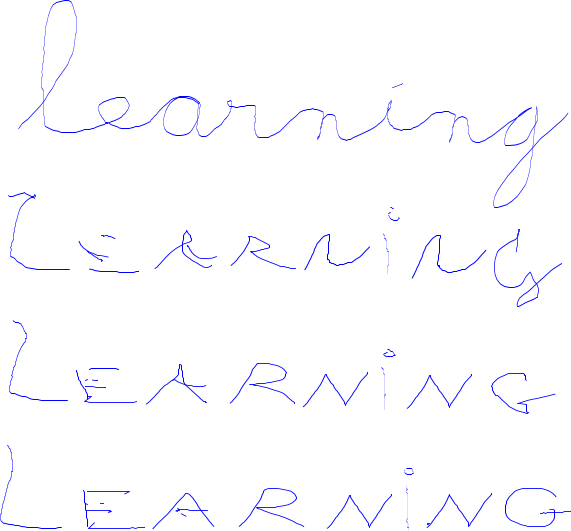 learning
LEARNiNG
LEARNiNG
LEARNiNG